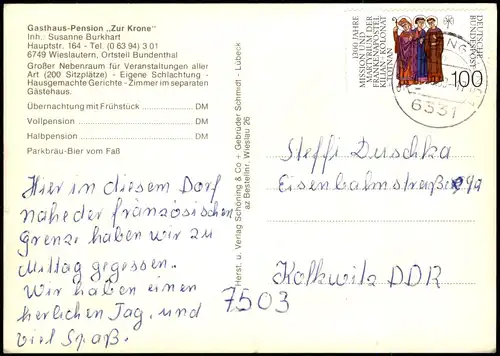 Gasthaus-Pension „Zur Krone"
Inh.: Susanne Burkhart
Hauptstr. 164 - Tel. (0 63 94) 3 01
6749 Wieslautern, Ortsteil Bundenthal
Großer Nebenraum für Veranstaltungen aller
Art (200 Sitzplätze) - Eigene Schlachtung -
Hausgemachte Gerichte - Zimmer im separaten
Gästehaus.
Übernachtung mit Frühstück DM
Vollpension DM
Halbpension DM
Parkbräu-Bier vom Faß
Hier in diesem Dorf
nahe der französischen
Grenze haben wir zu
Mittag gegessen.
Wir haben einen
herlichen Tag, und
viel Spaß.
Herst. u. Verlag Schöning & Co + Gebrüder Schmidt - Lübeck
az Bestellnr. Wieslau 26
1300 JAHRE
MISSION UND
MARTYRIUM DER
FRANKENAPOSTEL
KILIAN · KOLONAT
· TOTNAN
DEUTSCHE
BUNDESPOST
100
6331
Steffi Duschka
Eisenbahnstraße 9a
Kolkwitz DDR
7503